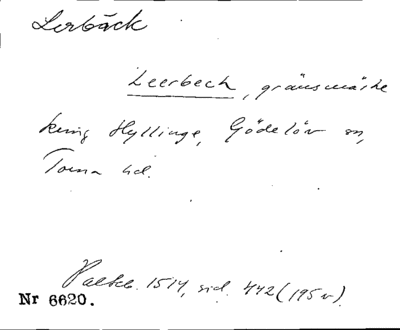 Lerbäck
Leerbeck, gränsmärke
kring Hyllinge, Gödelöv sn,
Torna hd.
Palteb. 1514, sid. 442 (195 v).
Nr 6620.